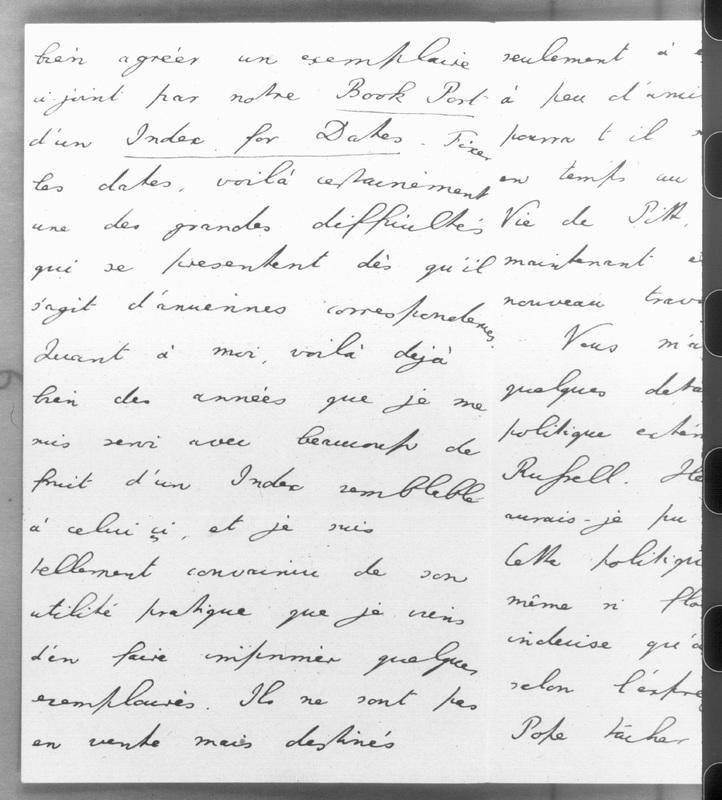 bien agréer un exemplaire
ci joint par notre Book Post
d'un Index for Dates. Fixer
les dates, voilà certainement
une des grandes difficultés
qui se presentent dès qu'il
s'agit d'anciennes correspondences.
Quant à moi, voilà dejà
bien des années que je me
suis servi avec beaucoup de
fruit d'un Index semblable
à celui çi, et je suis
tellement convaincu de son
utilité pratique que je viens
d'en faire imprimer quelques
exemplaires. Ils ne sont pas
en vente mais destinés
seulement à
à peu d'amis
pourra t il
en temps au
Vie de Pitt,
maintenant
nouveau trav
Vous m'a
quelques deta
politique extér
Russell. Hé
aurais-je pu
Cette politiqu
même si flo
indecise qu'a
selon l'expre
Pope tâcher